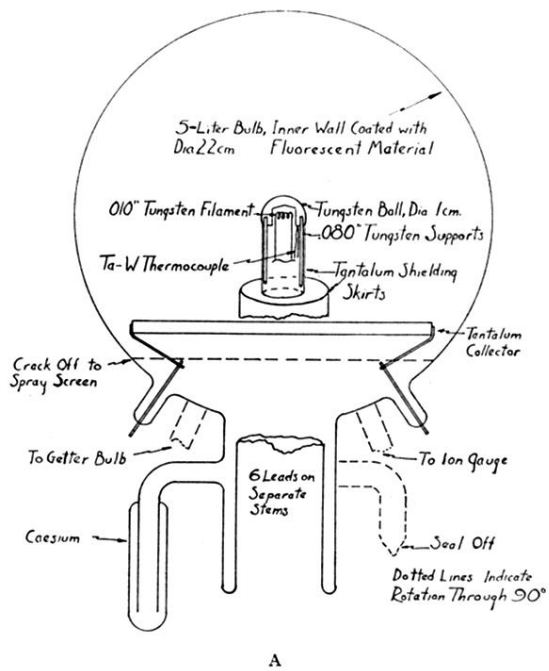 5-Liter Bulb, Inner Wall Coated with
Dia 22cm Fluorescent Material
.010" Tungsten Filament
Tungsten Ball, Dia 1cm.
.080" Tungsten Supports
Ta-W Thermocouple
Tantalum Shielding
Skirts
Tantalum
Collector
Crack Off to
Spray Screen
To Getter Bulb
To Ion Gauge
6 Leads on
Separate
Stems
Caesium
Seal Off
Dotted Lines Indicate
Rotation Through 90°
A